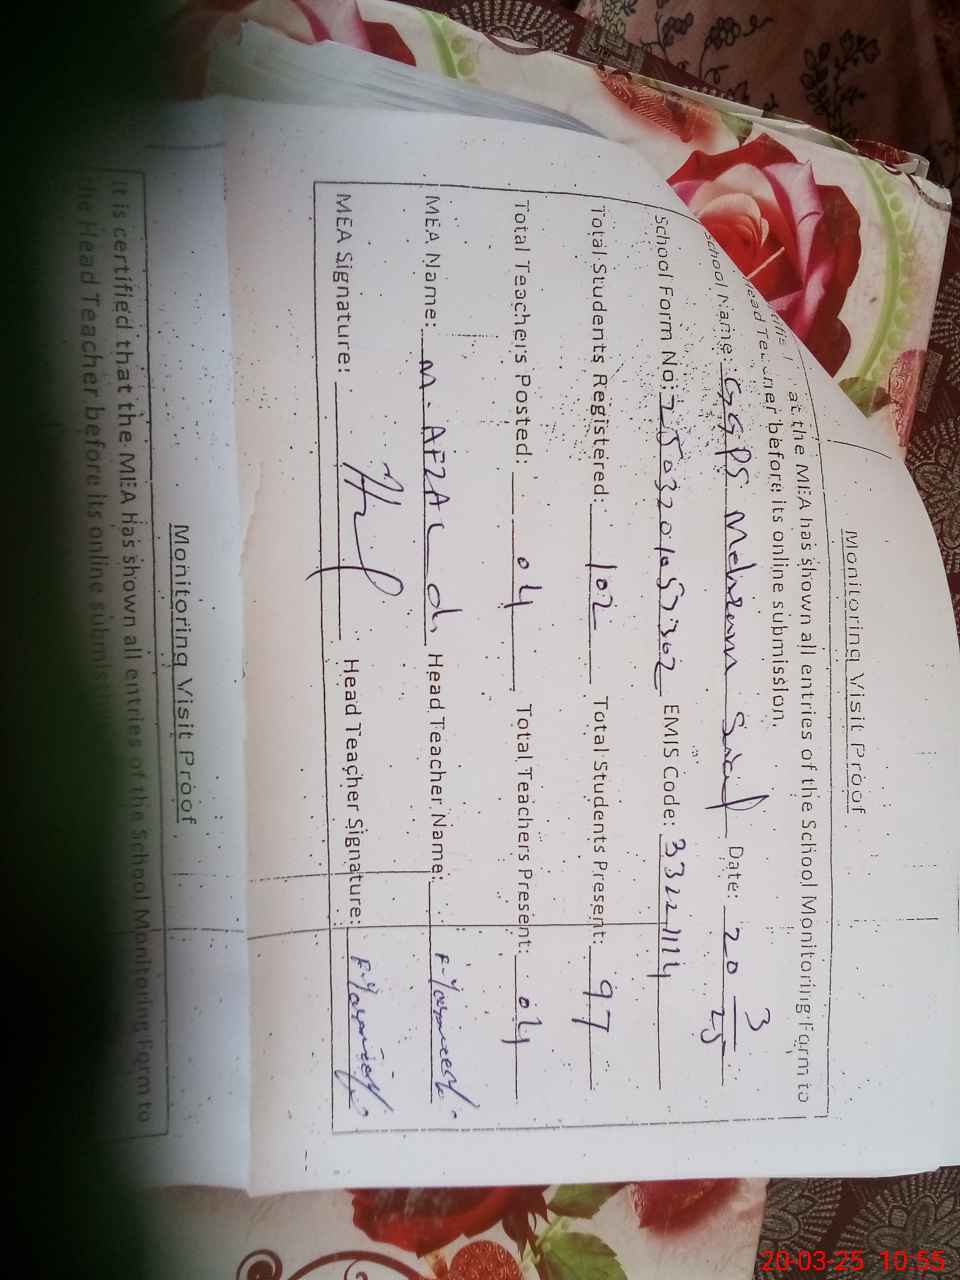 Monitoring Visit Proof
at the MEA has shown all entries of the School Monitoring Form to
Head Teacher before its online submission.
School Name: GGPS Mehram Sial Date: 20 3/25
School Form No: 250320105302 EMIS Code: 33221114
Total Students Registered: 102 Total Students Present: 97
Total Teachers Posted: 04 Total Teachers Present: 04
MEA Name: M. AFZAL Head Teacher Name: F-Yasmeen
MEA Signature: Head Teacher Signature: F-Yasmeen
Monitoring Visit Proof
It is certified that the MEA has shown all entries of the School Monitoring Form to
the Head Teacher before its online
20-03-25 10:55